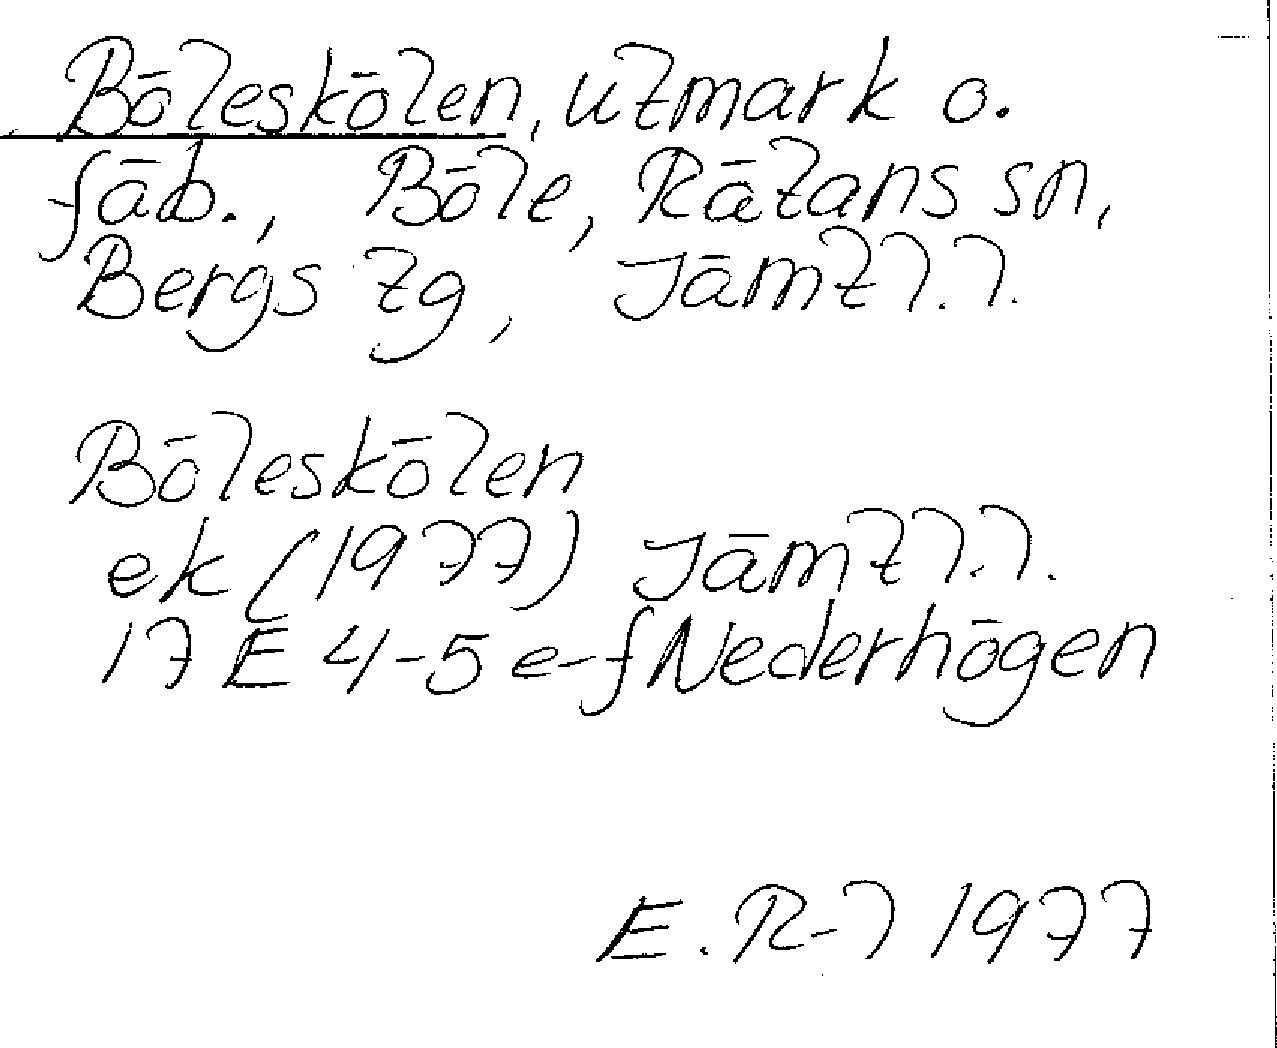 Böleskölen, utmark o.
fäb., Böle, Rätans sn,
Bergs tg, Jämtl.l.
Böleskölen
ek (1977) Jämtl.l.
17 E 4-5 e-f Nederhögen
E. R-l 1977